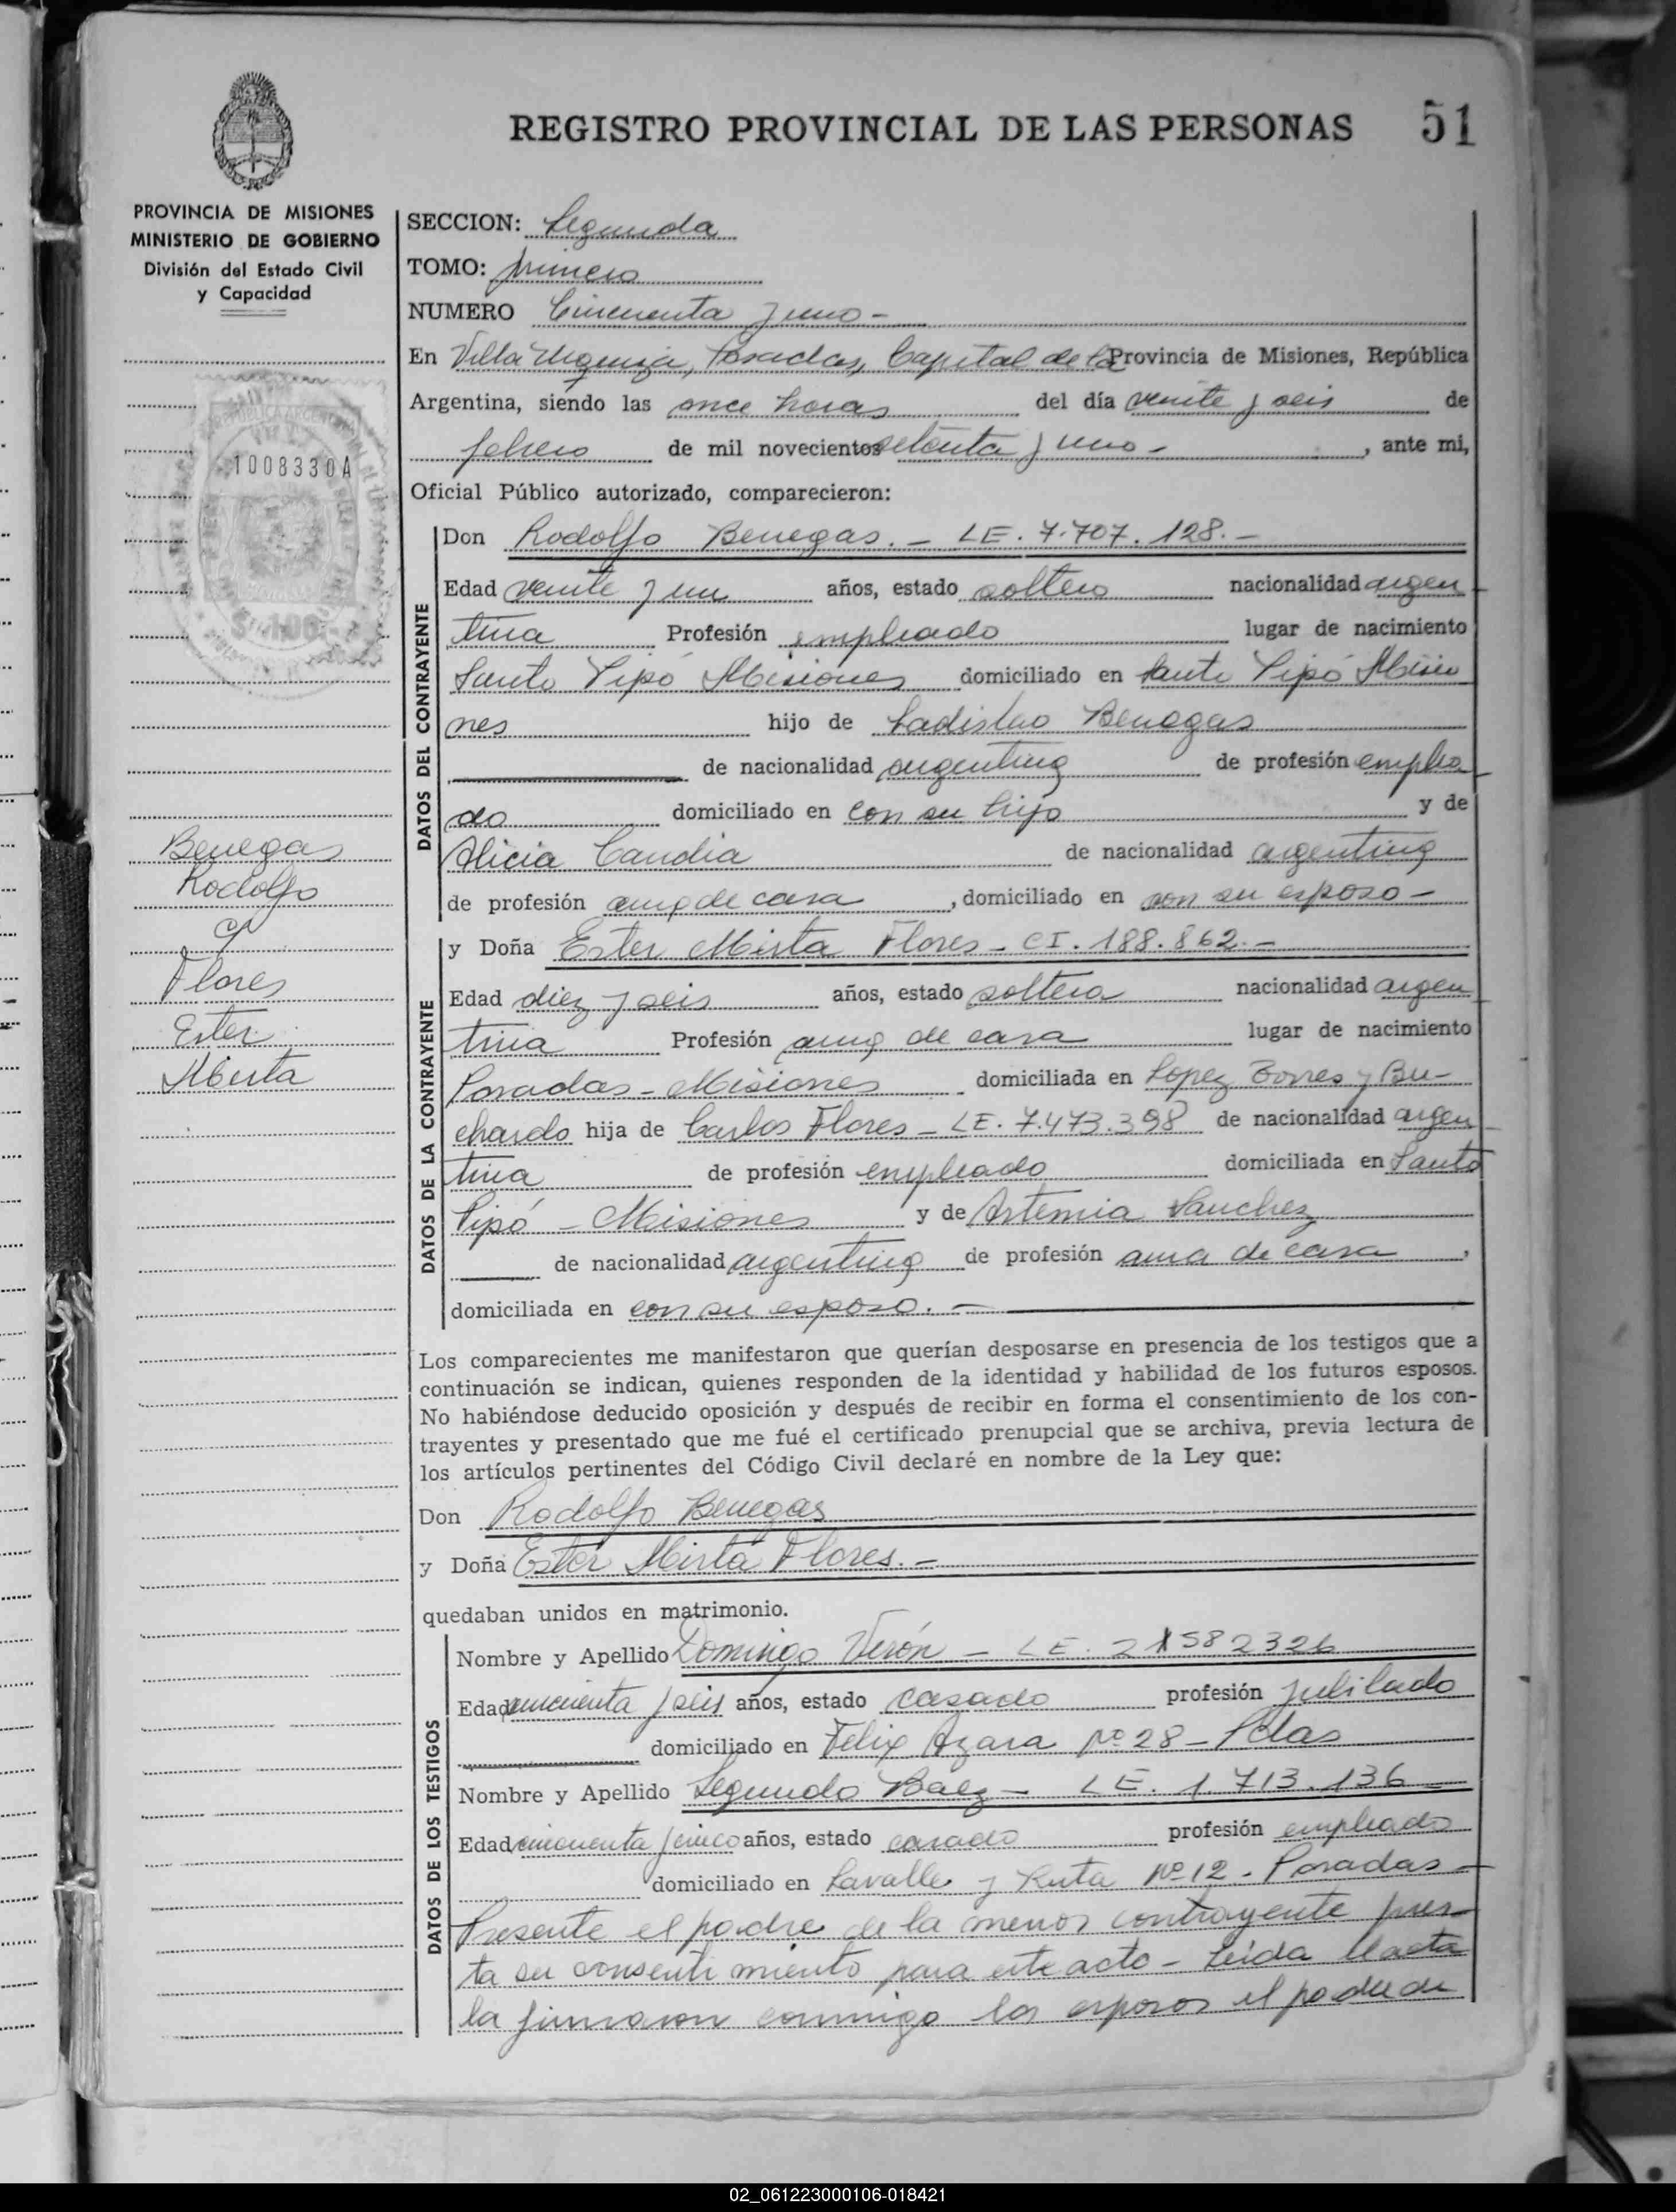 REGISTRO PROVINCIAL DE LAS PERSONAS 51
PROVINCIA DE MISIONES
MINISTERIO DE GOBIERNO
División del Estado Civil
y Capacidad
1008330A
Benegas
Rodolfo
y
Flores
Ester
Mirta
SECCION: Segunda
TOMO: primero
NUMERO Cincuenta y uno -
En Villa Urquiza, Posadas, Capital de la Provincia de Misiones, República
Argentina, siendo las once horas del día veinte y seis de
febrero de mil novecientos setenta y uno - , ante mi,
Oficial Público autorizado, comparecieron:
DATOS DEL CONTRAYENTE
Don Rodolfo Benegas. - LE. 7.707.128. -
Edad veinte y un años, estado soltero nacionalidad argen
tina Profesión empleado lugar de nacimiento
Santo Pipó Misiones domiciliado en Santo Pipó Misio
nes hijo de Ladislao Benegas
de nacionalidad argentina de profesión emplea
do domiciliado en con su hijo y de
Alicia Candia de nacionalidad argentina
de profesión ama de casa , domiciliado en con su esposo -
DATOS DE LA CONTRAYENTE
y Doña Ester Mirta Flores - CI. 188.862. -
Edad diez y seis años, estado soltera nacionalidad argen
tina Profesión ama de casa lugar de nacimiento
Posadas - Misiones domiciliada en Lopez Torres y Bu-
chardo hija de Carlos Flores - LE. 7.473.398 de nacionalidad argen
tina de profesión empleado domiciliada en Santo
Pipó - Misiones y de Artemia Sanchez
de nacionalidad argentina de profesión ama de casa ,
domiciliada en con su esposo. -
Los comparecientes me manifestaron que querían desposarse en presencia de los testigos que a
continuación se indican, quienes responden de la identidad y habilidad de los futuros esposos.
No habiéndose deducido oposición y después de recibir en forma el consentimiento de los con-
trayentes y presentado que me fué el certificado prenupcial que se archiva, previa lectura de
los artículos pertinentes del Código Civil declaré en nombre de la Ley que:
Don Rodolfo Benegas
y Doña Ester Mirta Flores. -
quedaban unidos en matrimonio.
DATOS DE LOS TESTIGOS
Nombre y Apellido Domingo Verón - LE.
Edad cincuenta y seis años, estado casado profesión jubilado
domiciliado en Felix Azara Nº 28 - Pdas
Nombre y Apellido Segundo Baez - LE. 1.713.136
Edad cincuenta y cinco años, estado casado profesión empleado
domiciliado en Lavalle y Ruta Nº 12 - Posadas -
Presente el padre de la menor contrayente pres-
ta su consentimiento para este acto - Leida el acta
la firmaron conmigo los esposos el padre de
02_061223000106-018421